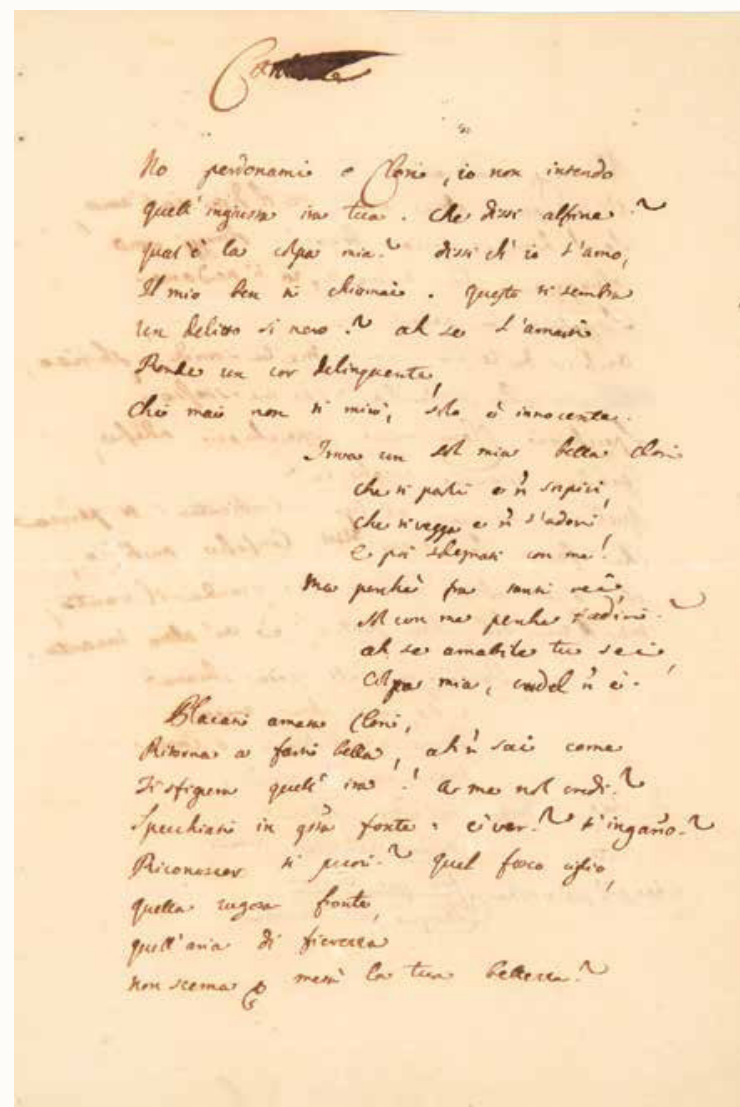 Cantata
No perdonami o Clori, io non intendo
quell' ingiusta ira tua. che dissi alfine?
qual' è la colpa mia? dissi ch' io t'amo,
Il mio ben ti chiamai. questo ti sembra
un delitto sì nero? ah se l'amarti
Rende un cor delinquente,
chi mai non ti mirò, solo è innocente.
Trova un sol mia bella Clori
che ti parli e ñ sospiri,
che ti vegga e ñ t'adori
e poi sdegnati con me!
Ma perchè fra tanti rei,
sol con me perchè t'adiri?
ah se amabile tu sei,
colpa mia, crudel ñ è.
Placati amata Clori,
Ritorna a farti bella, ah ñ sai come
Ti sfigura quell' ira! a me nol credi?
Specchiati in qsta fonte: è ver? t'ingaño?
Riconoscer ti puoi? quel fosco ciglio,
quella rugosa fronte,
quell' aria di fierezza
non scema metà la tua bellezza?